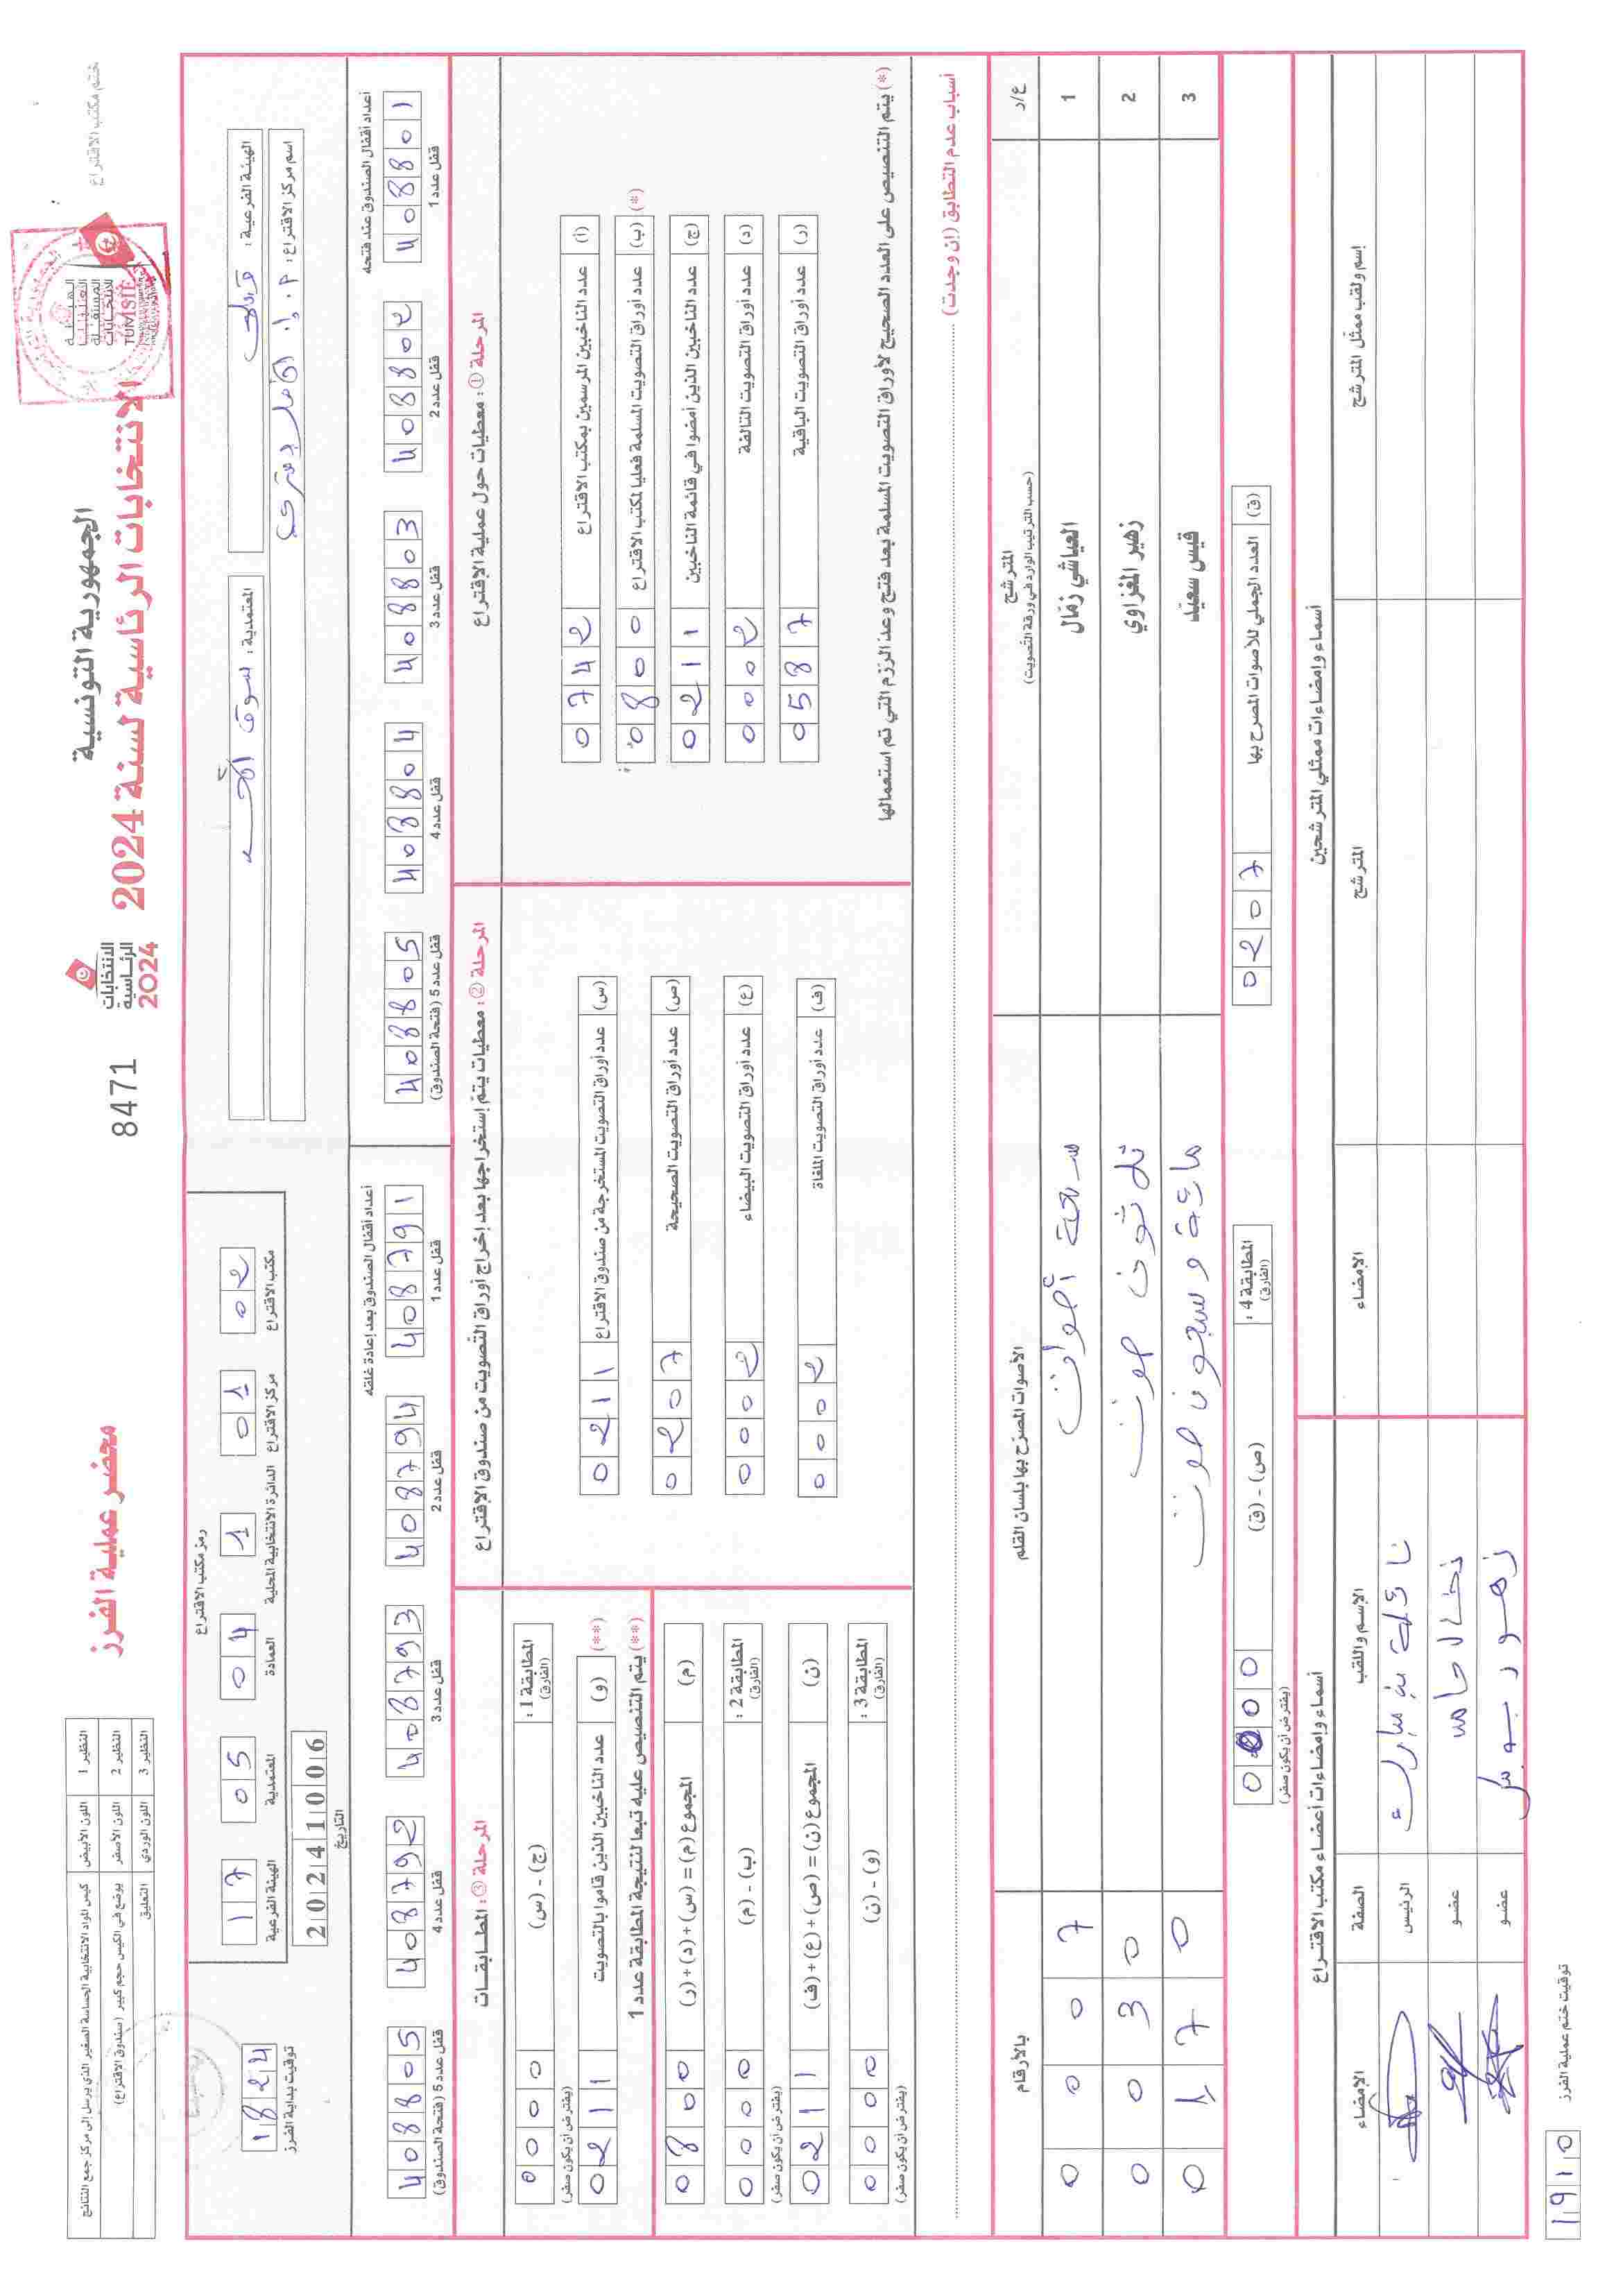 الجمهورية التونسية
الانتخابات الرئاسية لسنة 2024
الانتخابات
الرئاسية
2024
8471
محضر عملية الفرز
النظير 1 اللون الأبيض كيس المواد الانتخابية الحساسة الصغير الذي يرسل إلى مركز جمع النتائج
النظير 2 اللون الأصفر يوضع في الكيس حجم كبير (صندوق الاقتراع)
النظير 3 اللون الوردي التعليق
ختم مكتب الاقتراع
الهيئة الفرعية : قبلي
المعتمدية : سوق الأحد
اسم مركز الاقتراع :
رمز مكتب الاقتراع
17 05 04 1 01 02
الهيئة الفرعية المعتمدية العمادة الدائرة الانتخابية المحلية مركز الاقتراع مكتب الاقتراع
20241006
التاريخ
1824
توقيت بداية الفرز
أعداد أقفال الصندوق عند فتحه
408801 408802 408803 408804 408805
قفل عدد 1 قفل عدد 2 قفل عدد 3 قفل عدد 4 قفل عدد 5 (فتحة الصندوق)
أعداد أقفال الصندوق بعد إعادة غلقه
408791 408794 408793 408792 408805
قفل عدد 1 قفل عدد 2 قفل عدد 3 قفل عدد 4 قفل عدد 5 (فتحة الصندوق)
المرحلة ① : معطيات حول عملية الاقتراع
(أ) عدد الناخبين المرسمين بمكتب الاقتراع 0742
(ب) عدد أوراق التصويت المسلمة فعليا لمكتب الاقتراع 0800 (*)
(ج) عدد الناخبين الذين أمضوا في قائمة الناخبين 0211
(د) عدد أوراق التصويت التالفة 0002
(ر) عدد أوراق التصويت الباقية 0587
(*) يتم التنصيص على العدد الصحيح لأوراق التصويت المسلمة بعد فتح وعد الرزم التي تم استعمالها
المرحلة ② : معطيات يتم إستخراجها بعد إخراج أوراق التصويت من صندوق الاقتراع
(س) عدد أوراق التصويت المستخرجة من صندوق الاقتراع 0211
(ص) عدد أوراق التصويت الصحيحة 0207
(ع) عدد أوراق التصويت البيضاء 0002
(ف) عدد أوراق التصويت الملغاة 0002
المرحلة ③ : المطابقات
المطابقة 1 : (الفارق) (ج) - (س) 0000
(يفترض أن يكون صفر)
(**) (و) عدد الناخبين الذين قاموا بالتصويت 0211
(**) يتم التنصيص عليه تبعا لنتيجة المطابقة عدد 1
(م) المجموع (م) = (س) + (د) + (ر) 0800
المطابقة 2 : (الفارق) (ب) - (م) 0000
(يفترض أن يكون صفر)
(ن) المجموع (ن) = (ص) + (ع) + (ف) 0211
المطابقة 3 : (الفارق) (و) - (ن) 0000
(يفترض أن يكون صفر)
أسباب عدم التطابق (إن وجدت)
ع/ر المترشح الأصوات المصرح بها بلسان القلم بالأرقام
(حسب الترتيب الوارد في ورقة التصويت)
1 العياشي زمّال سبعة أصوات 0007
2 زهير المغزاوي ثلاثون صوت 0030
3 قيس سعيّد مائة وسبعون صوت 0170
(ق) العدد الجملي للأصوات المصرح بها 0207
المطابقة 4 : (الفارق) (ص) - (ق) 0000
(يفترض أن يكون صفر)
أسماء وإمضاءات ممثلي المترشحين
إسم ولقب ممثل المترشح المترشح الإمضاء
أسماء وإمضاءات أعضاء مكتب الاقتراع
الإسم واللقب الصفة الإمضاء
نائلة بن مبارك الرئيس
عضو
عضو
توقيت ختم عملية الفرز
1910